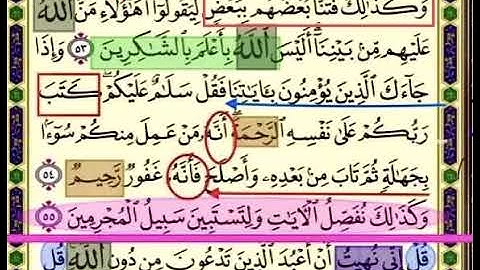 وَكَذَٰلِكَ فَتَنَّا بَعْضَهُم بِبَعْضٍ لِّيَقُولُوٓا۟ أَهَٰٓؤُلَآءِ مَنَّ ٱللَّهُ
عَلَيْهِم مِّنۢ بَيْنِنَآ ۗ أَلَيْسَ ٱللَّهُ بِأَعْلَمَ بِٱلشَّٰكِرِينَ ٥٣ وَإِذَا
جَآءَكَ ٱلَّذِينَ يُؤْمِنُونَ بِـَٔايَٰتِنَا فَقُلْ سَلَٰمٌ عَلَيْكُمْ ۖ كَتَبَ
رَبُّكُمْ عَلَىٰ نَفْسِهِ ٱلرَّحْمَةَ ۖ أَنَّهُۥ مَنْ عَمِلَ مِنكُمْ سُوٓءًۢا
بِجَهَٰلَةٍ ثُمَّ تَابَ مِنۢ بَعْدِهِۦ وَأَصْلَحَ فَأَنَّهُۥ غَفُورٌ رَّحِيمٌ ٥٤
وَكَذَٰلِكَ نُفَصِّلُ ٱلْـَٔايَٰتِ وَلِتَسْتَبِينَ سَبِيلُ ٱلْمُجْرِمِينَ ٥٥
قُلْ إِنِّى نُهِيتُ أَنْ أَعْبُدَ ٱلَّذِينَ تَدْعُونَ مِن دُونِ ٱللَّهِ ۚ قُل